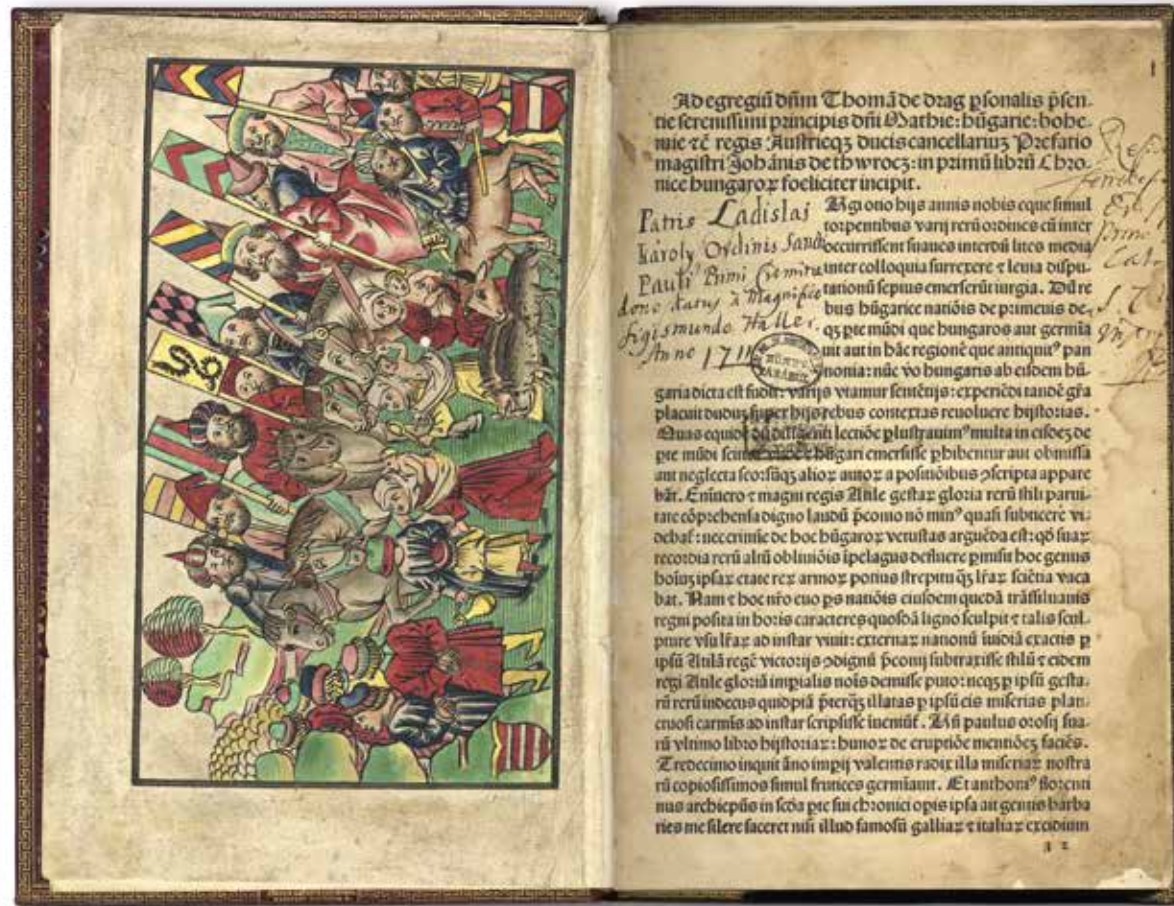 1
Ad egregiū dn̄m Thomā de drag ꝑsonalis p̄sen-
tie serenissimi principis dn̄i Mathie: hūgarie: bohe-
mie ⁊c̄ regis Austrieqꝫ ducis cancellariuꝫ Prefatio
magistri Johānis de thwrocꝫ: in primū librū Chro-
nice hungaroꝝ foeliciter incipit.
Patris Ladislai
Karoly Ordinis Sancti
Pauli Primi Eremitæ
dono datus à Magnifico
Sigismundo Haller.
Anno 17
hijs annis nobis eque simul
torpentibus varij rerū ordines cū inter
occurrissent suaues interdū lites media
inter colloquia surrexere ⁊ leuia dispu-
tationū sepius emerserūt iurgia. Dū re
bus hūgarice natiōis de primeuis de-
qꝫ ꝑte mūdi que hungaros aut germīa
uit aut in hāc regionē que antiquitꝰ pan
nonia: nūc vo hungaris ab eisdem hū-
garia dicta est fudit: varijs vtamur sentētijs: experiēdi tandē grā
placuit duduꝫ super hijs rebus contextas reuoluere hijstorias.
Quas equidē dū diligenti lectiōe ꝑlustrauimꝰ multa in eisdeꝫ de
ꝑte mūdi hūgari emersisse ꝑhibentur aut obmissa
aut neglecta seorsūqꝫ alioꝝ autoꝝ a positiōibus ↄscripta appare
bāt. Enīuero ⁊ magni regis Atile gestaꝝ gloria rerū stili parui-
tate cōprehensa digno laudū p̄conio nō minꝰ quasi subticere vi-
debat: nec crimīe de hoc hūgaroꝝ vetustas arguēda est: qō suaꝝ
recordia rerū altū obliuiōis ipelagus defluere ꝑmisit hoc genus
hoīuꝫ ipsaꝝ etate rex armoꝝ potius strepitu qꝫ lr̄aꝝ sciētia vaca
bat. Nam ⁊ hoc nr̄o euo ps natiōis eiusdem quedā trāssiluanis
regni posita in horis caracteres quosdā ligno sculpit ⁊ talis scul-
pture vsu lr̄aꝝ ad instar viuit: externaꝝ nationū īuidiā exactis ꝑ
ipsū Atilā regē victorijs ↄdignū p̄conij subtraxisse stilū ⁊ eidem
regi Atile gloriā imꝑialis noīs demisse puto: neqꝫ ꝑ ipsū gesta-
rū rerū indecus quidpiā p̄terqꝫ illatas ꝑ ipsū eis miserias plan-
ctuosi carmīs ad instar scripsisse īueniūt. paulus orosij sua-
rū vltimo libro hijstoriaꝝ: hunoꝝ de eruptiōe mentiōeꝫ faciēs.
Tredecimo inquit āno impij valentis radix illa miseriaꝝ nostra
rū copiosissimos simul frutices germīauit. Et anthonꝰ florenti
nus archiepūs in scd̄a ꝑte sui chronici opis ipsa ait gentis barba
ries me silere faceret nisi illud famosū galliaꝝ ⁊ italiaꝝ excidium